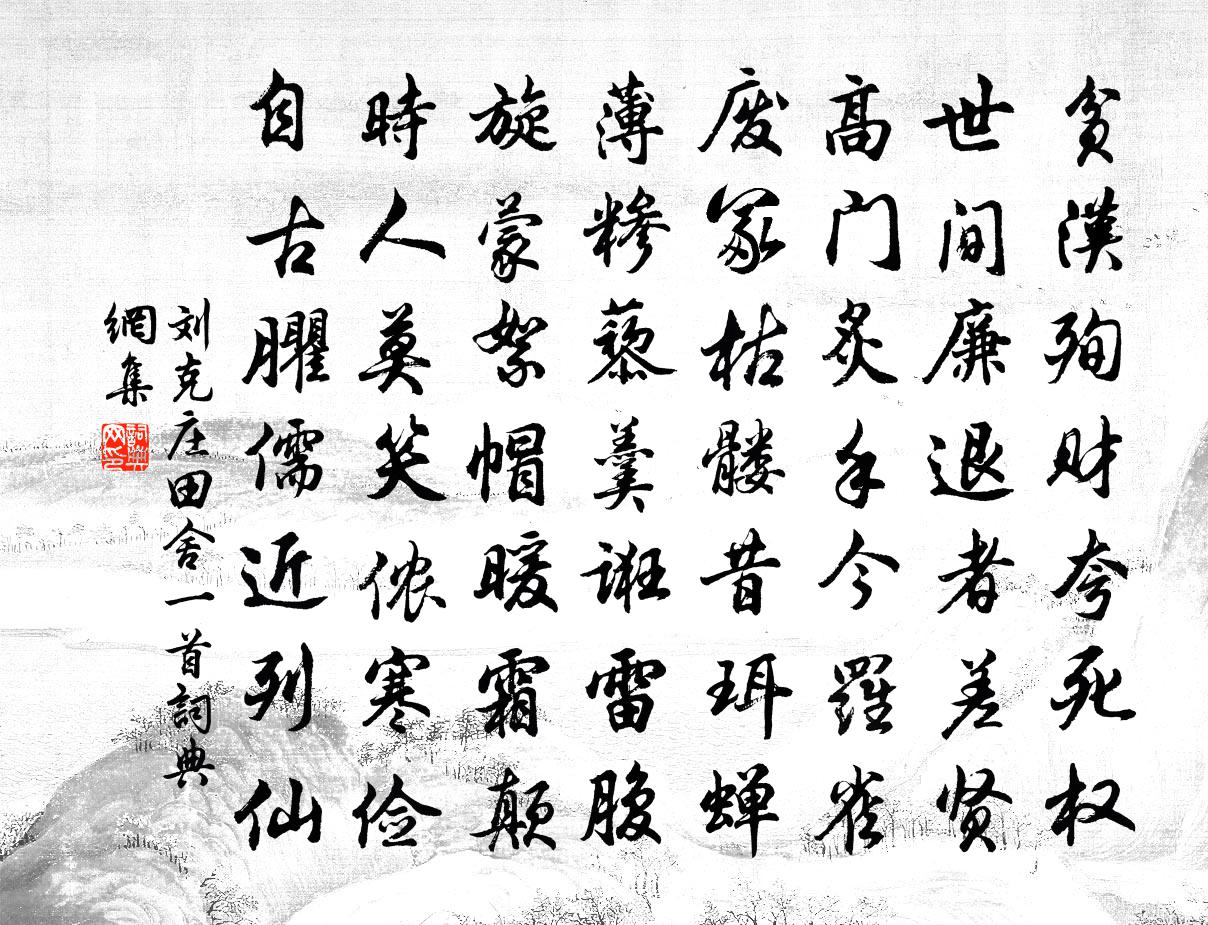 贫漢殉财夸死权
世间廉退者差贤
高门炙手今羅雀
废冢枯髅昔珥蝉
薄糁藜羹诳雷腹
旋蒙絮帽暖霜颠
時人莫笑侬寒俭
自古臞儒近列仙
刘克庄田舍一首詞典
網集